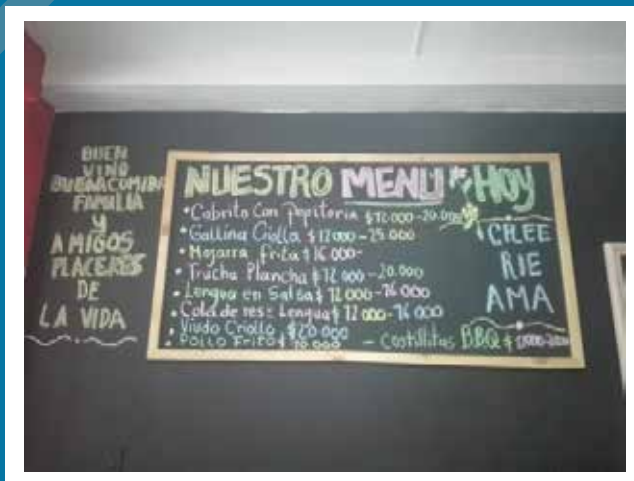 BUEN
VINO
BUENA COMIDA
FAMILIA
Y
AMIGOS
PLACERES
DE
LA VIDA
NUESTRO MENU HOY
• Cabrito Con Pepitoria $12000-20.000
• Gallina Criolla $12000-25.000
• Mojarra frita $16.000-
• Trucha Plancha $12.000-20.000
• Lengua en Salsa $12000-16000
• Cola de res: Lengua $12000-16000
• Viudo Criollo $20.000
• Pollo Frito $10.000 - Costillitas BBQ $
CHEE
RIE
AMA